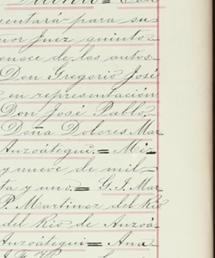 sentara para su
nor Juez quinto
onoce de los autos
Don Gregorio José
en representación
Don José Pablo
Doña Dolores Mar
Anzoátegui. = Mi
y nueve de mil
ta y uno. = G. J. Mar
P. Martinez del Rio
del Rio de Anzoá
Anzoátegui = Ana